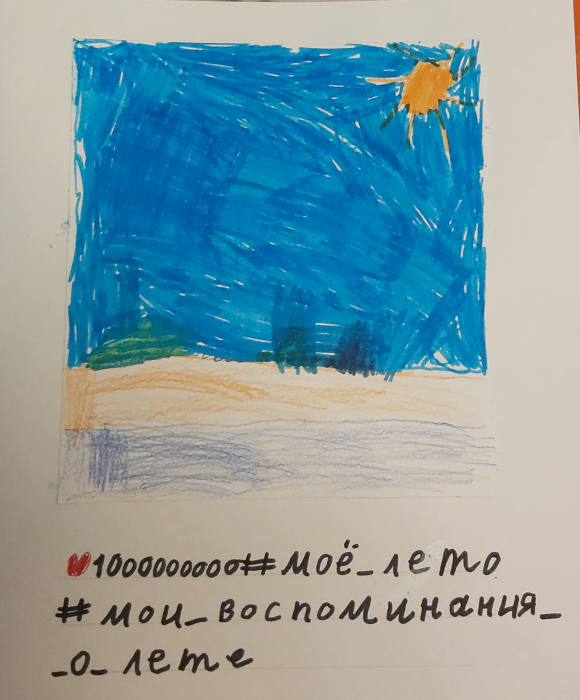 ❤10000000000#моё_лето
#мои_воспоминания_
_о_лете